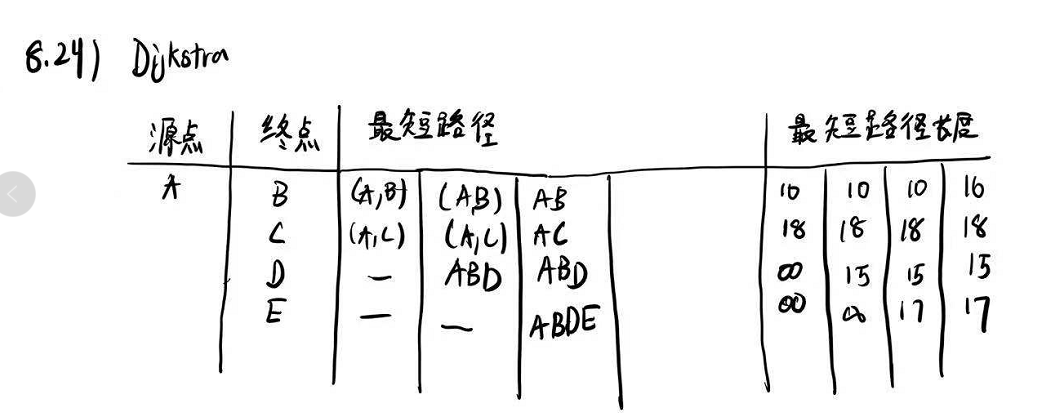 8.24) Dijkstra
源点 终点 最短路径 最短路径长度
A B (A,B) (AB) AB 10 10 10 10
C (A,C) (A,C) AC 18 18 18 18
D — ABD ABD ∞ 15 15 15
E — — ABDE ∞ ∞ 17 17